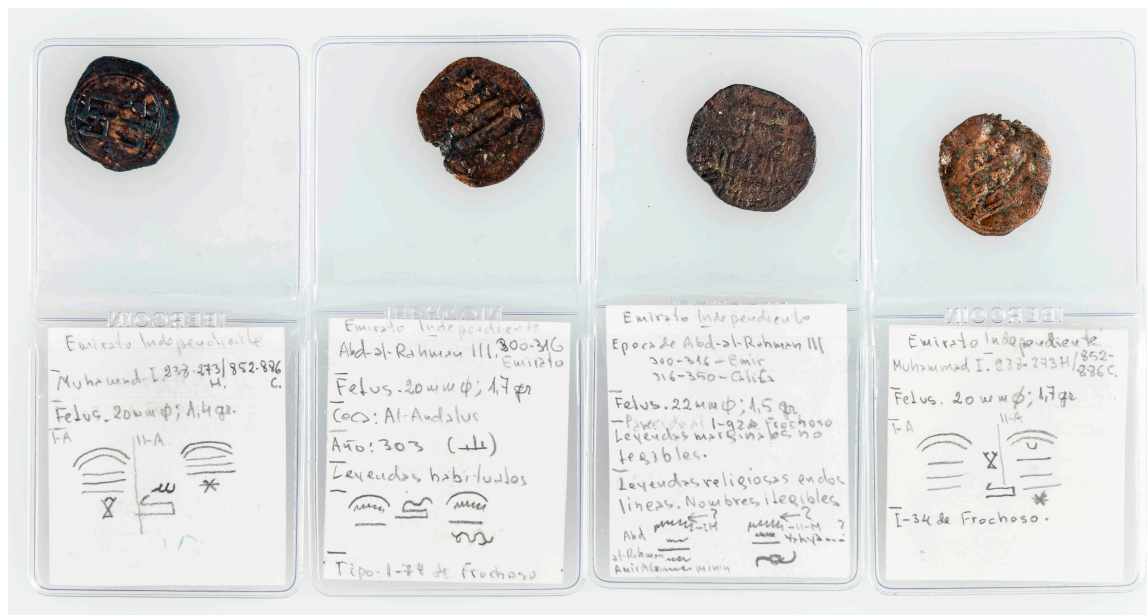 Emirato Independiente
Muhamad I. 238-273/852-886
H. C.
Felus. 20mm φ; 1,4 gr.
I-A II-A
Emirato Independiente
Abd-al-Rahman III. 300-316
Emirato
Felus. 20mm φ; 1,7 gr
Ceca: Al-Andalus
Año: 303
Leyendas habituales
Tipo: I- de Frochoso
Emirato Independiente
Epoca de Abd-al-Rahman III
300-316-Emir
316-350-Califa
Felus. 22mm φ; 1,5 gr
de Frochoso
Leyendas marginales no
legibles.
Leyendas religiosas en dos
lineas. Nombres ilegibles
Abd
al-Rahman
Emirato Independiente
Muhammad I. 238-273H/852-
886C.
Felus. 20mm φ; 1,7 gr
I-A II-A
I-34 de Frochoso.